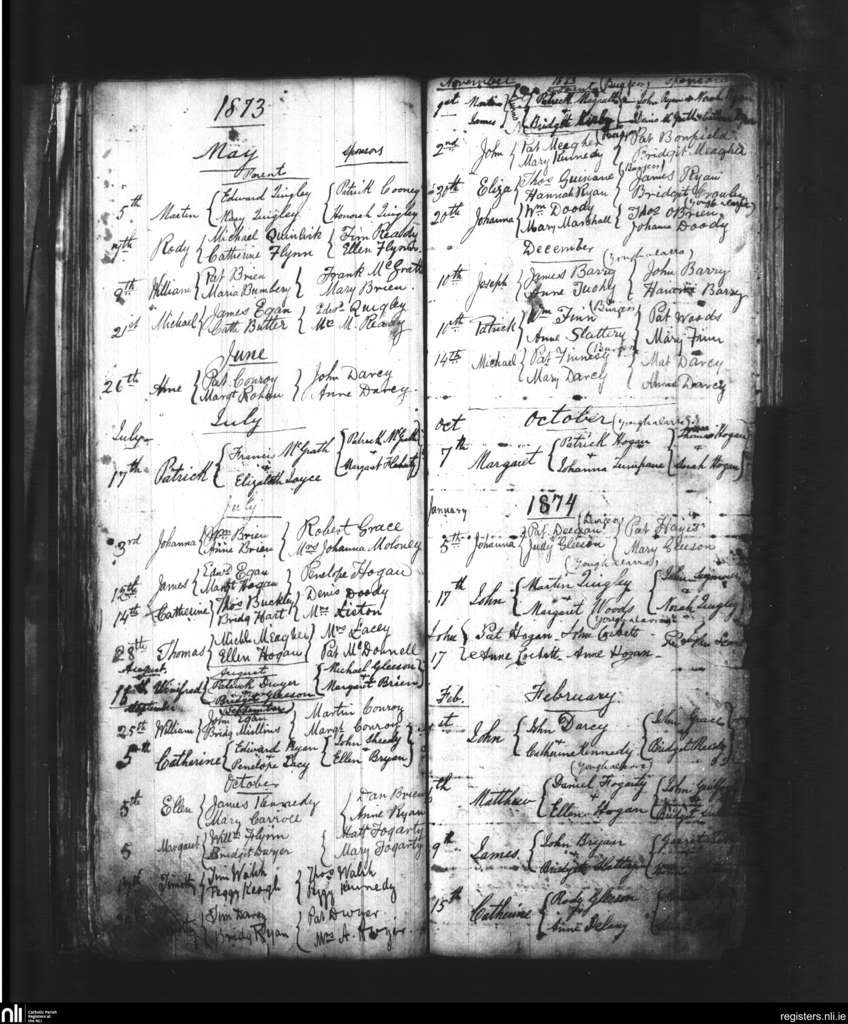 1873
May
Parent Sponsors
5th Martin { Edward Quigley { Patrick Cooney
Mary Quigley Honorah Quigley
7th Rody { Michael Quinlivk { Tim Readdy
Catherine Flynn Ellen Flynn
9th William { Pat Brien { Frank McGrath
Maria Bumbery Mary Brien
21st Michael { James Egan { Edwd Quigley
Cath Butter Mc M. Ready
June
26th Anne { Pat Conroy { John Darcy
Margt Anne Darcy
July
July
17th Patrick { Francis McGrath { Patrick McGrath
+ +
Elizabeth Joyce Margaret
July
3rd Johanna { Wm Brien { Robert Grace
Anne Brien Mrs Johanna Moloney
12th James { Edwd Egan { Penelope Hogan
Margt Hogan
14th Catherine { Thos Buckley { Denis Doody
Bridg Hart Mrs Liston
28th Thomas { Michl Meagher { Mrs Lacey
Ellen Hogan Pat McDonnell
August August
15th Winifred { Patrick Dwyer { Michael Gleeson
Bridget Gleeson Margaret Brien
September September
25th William { John Egan { Martin Conroy
Bridg Mullins Margt Conroy
5th Catherine { Edward Ryan { John Sheedy
+ +
Penelope Lacy Ellen Bryan
October
5th Ellen { James Kennedy { Dan Brien
Mary Carroll Anne Ryan
5 Margaret { Willm Flynn { Matt Fogarty
Bridgit Dwyer Mary Fogarty
Timothy { Tim Walsh { Thos Walsh
Peggy Keogh Peggy Kennedy
{ Tim Darcy { Pat Dwyer
Bridg Ryan Mrs A. Dwyer
November 1873 (Burges) Sponsors
Martin { Patrick Magrath John Ryan + Norah
James Bridgett Denis McGrath +
2nd John { Pat Meagher { Pat Bonfield
Mary Kennedy Bridgit Meagher
(Burges)
30th Eliza { Thos Guinane { James Ryan
Hannah Ryan Bridgit
(Youghalarra)
20th Johanna { Wm Doody { Thos O'Brien
Mary Marshall Johana Doody
December
(Youghalarra)
10th Joseph { James Barry { John Barry
Anne Tuohy Barry
10th Patrick { Wm Finn (Burges) { Pat Woods
Anne Slattery Mary Finn
(Burges)
14th Michael { Pat { Mat Darcy
Mary Darcy Anne Darcy
Oct October (Youghalarra)
7th Margaret { Patrick Hogan { Thomas Hogan
+ +
Johanna Hogan
January 1874
(Burges)
5th Johanna { Pat Deegan { Pat Hayes
Judy Gleeson Mary Gleeson
(Youghalarra)
17th John { Martin Quigley { John
+ +
Margaret Woods Norah Quigley
(Youghalarra)
John } Pat Hogan - John Corbett
17 Anne Corbett - Anne Hogan
Feb. February
John { John Darcy { John Grace
+ +
Catharine Kennedy Bridget
(Youghalarra)
th Matthew { Daniel Fogarty { John
+
Ellen Hogan Bridget
9th James { John Bryan {
+
Bridget Slattery
15th Catherine { Rody Gleeson {
Anne Delany
nli
Catholic Parish
Registers at
the NLI
registers.nli.ie